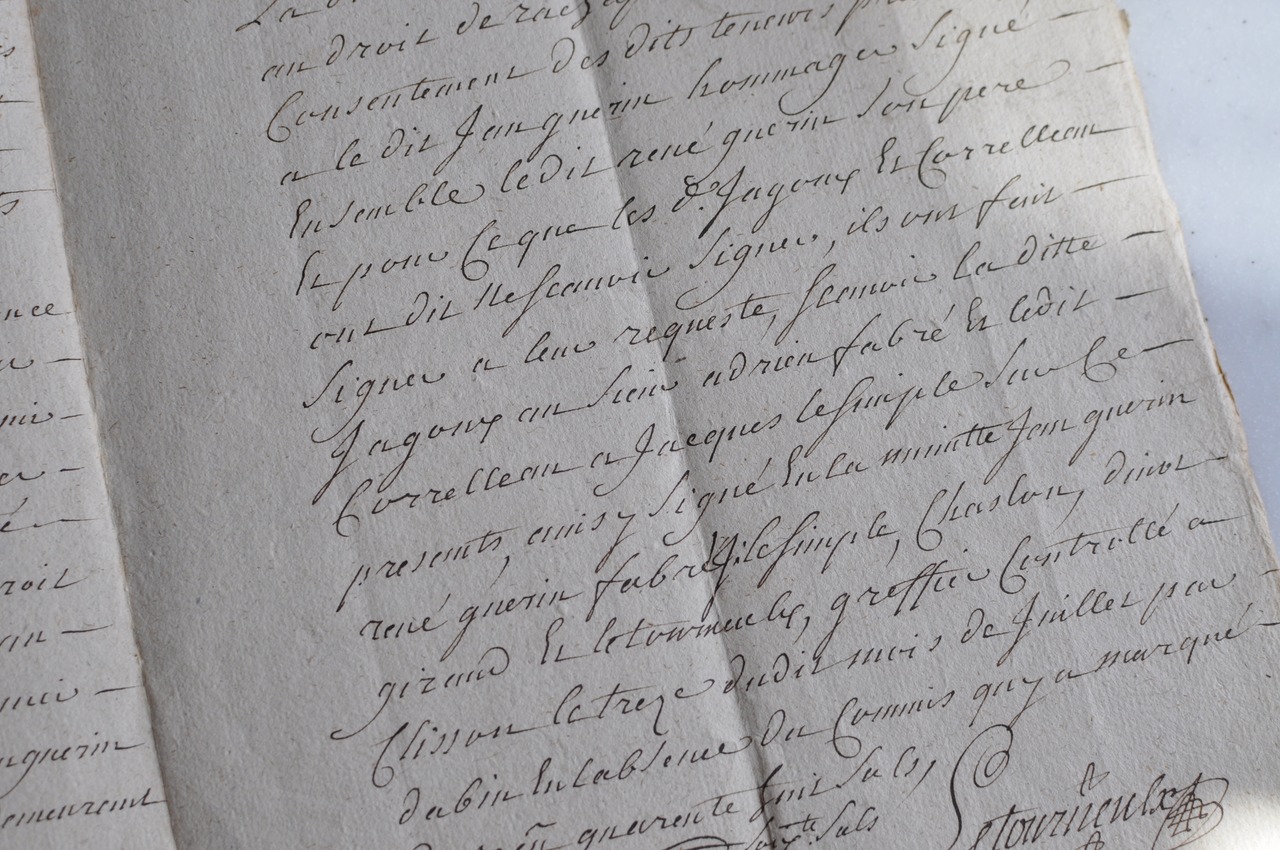 nce
mi
é
roit
guerin
emeureint
La
au droit de
Consentement des dits teneurs
a le dit Jan guerin hommager Signé
Ensemble ledit rené guerin Son pere
Et pour Ce que les d. Jagoux Et Correlleau
ont dit ne Scauoir Signer, ils ont fait
Signer a leur requeste, Scauoir la ditte
Jagoux au Sieur adrien fabré Et ledit
Correlleau a Jacques leSimple Sur Ce
presents, ainsy Signé En la minitte Jan guerin
rené guerin fabré J. leSimple, Chaslon, dinot
giraud Et letourneulx, greffier Controllé a
Clisson le treze dudit mois de Juillet par
dabin En labsence du Commis qui y a marqué
quarente huit Sols,
Sols
Letourneulx